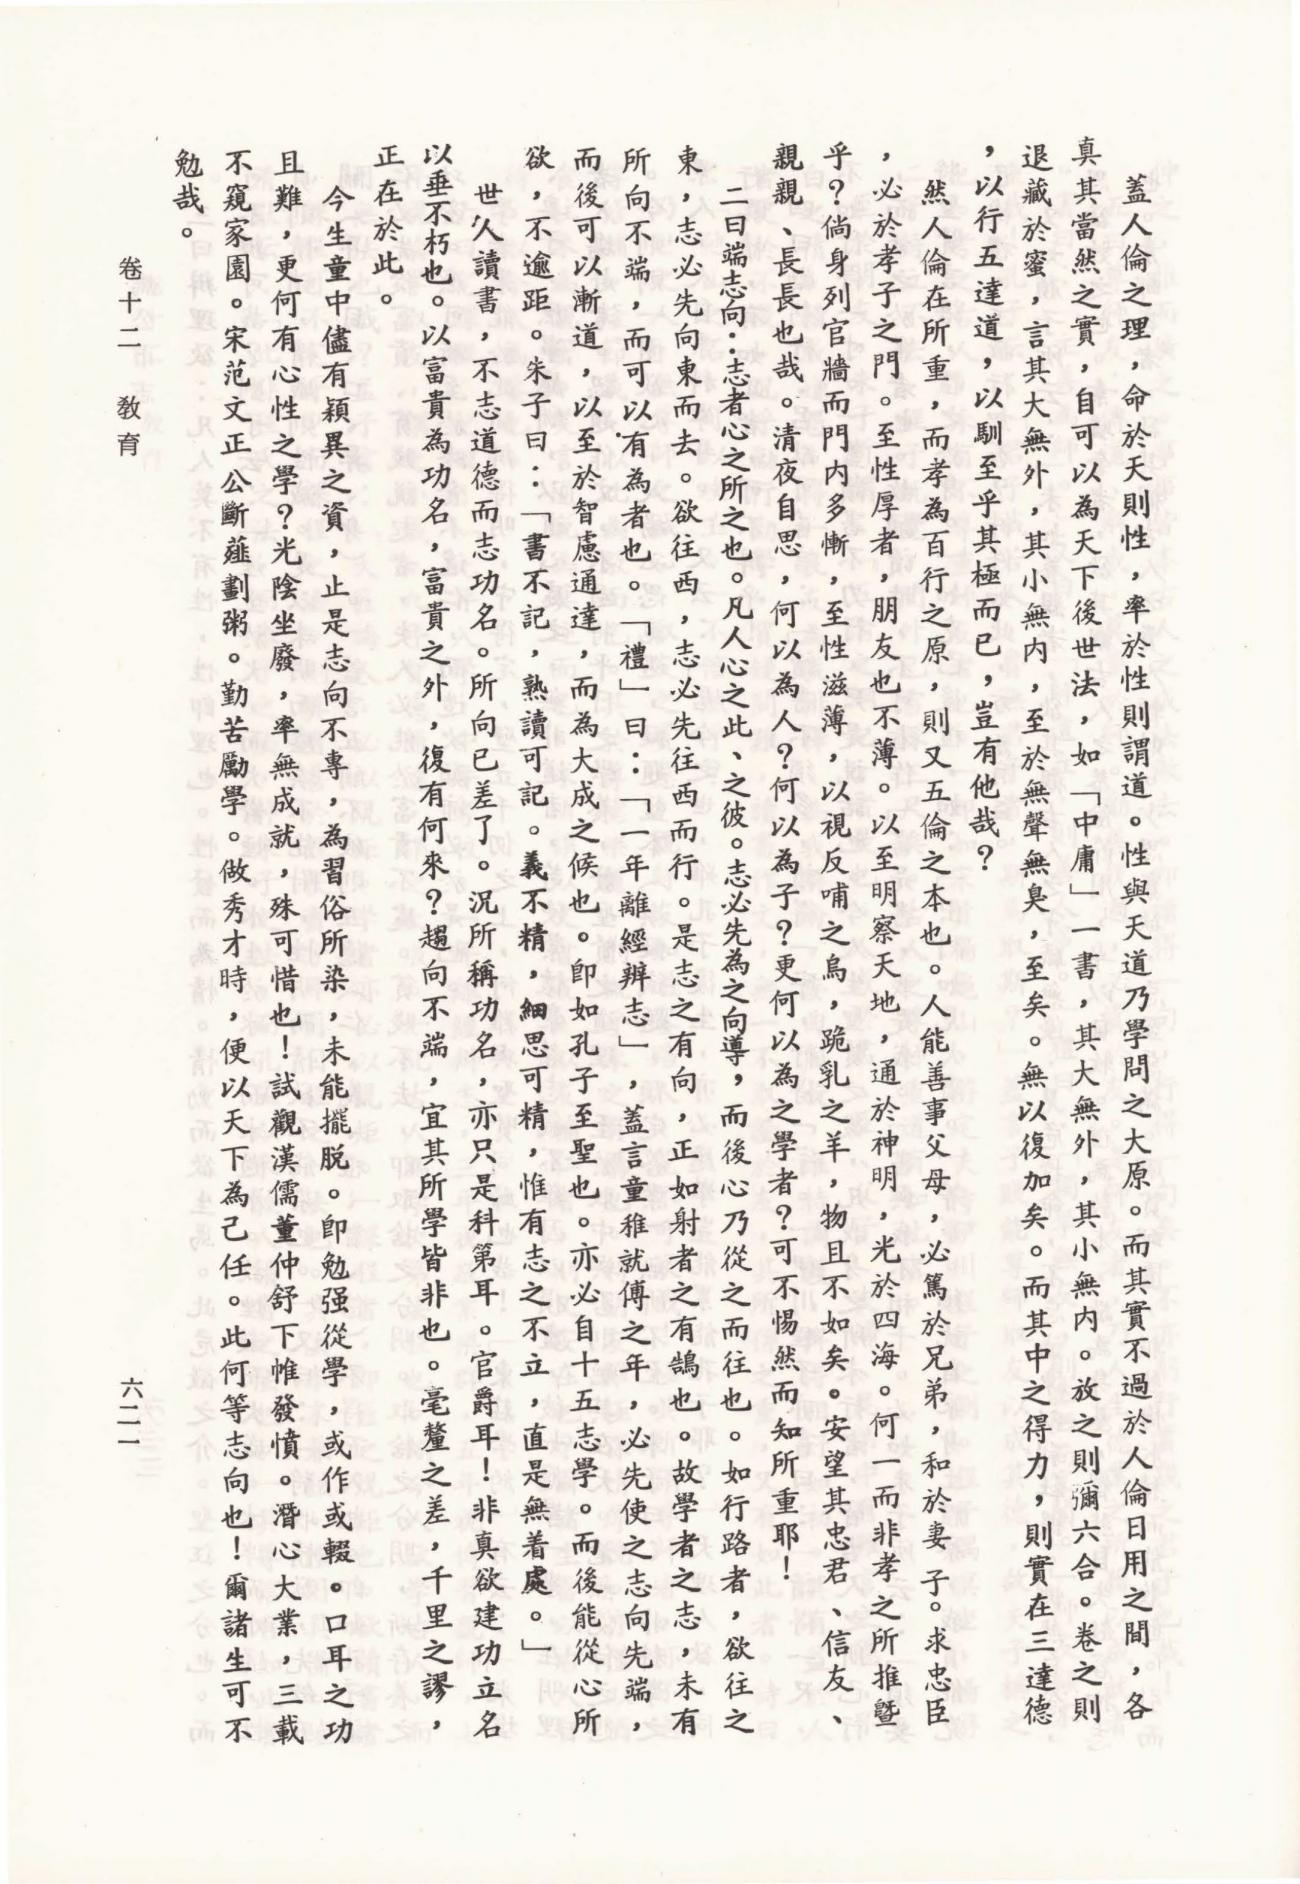 蓋人倫之理，命於天則性，率於性則謂道。性與天道乃學問之大原。而其實不過於人倫日用之間，各
真其當然之實，自可以為天下後世法，如「中庸」一書，其大無外，其小無內。放之則彌六合。卷之則
退藏於蜜，言其大無外，其小無內，至於無聲無臭，至矣。無以復加矣。而其中之得力，則實在三達德
，以行五達道，以馴至乎其極而已，豈有他哉？
然人倫在所重，而孝為百行之原，則又五倫之本也。人能善事父母，必篤於兄弟，和於妻子。求忠臣
，必於孝子之門。至性厚者，朋友也不薄。以至明察天地，通於神明，光於四海。何一而非孝之所推曁
乎？倘身列官牆而門內多慚，至性滋薄，以視反哺之烏，跪乳之羊，物且不如矣。安望其忠君、信友、
親親、長長也哉。清夜自思，何以為人？何以為子？更何以為之學者？可不惕然而知所重耶！
二曰端志向：志者心之所之也。凡人心之此、之彼。志必先為之向導，而後心乃從之而往也。如行路者，欲往之
東，志必先向東而去。欲往西，志必先往西而行。是志之有向，正如射者之有鵠也。故學者之志，未有
所向不端，而可以有為者也。「禮」曰：「一年離經辨志」，蓋言童稚就傅之年，必先使之志向先端，
而後可以漸道，以至於智慮通達，而為大成之候也。卽如孔子至聖也。亦必自十五志學。而後能從心所
欲，不逾距。朱子曰：「書不記，熟讀可記。義不精，細思可精，惟有志之不立，直是無着處。」
世人讀書，不志道德而志功名。所向已差了。況所稱功名，亦只是科第耳。官爵耳！非真欲建功立名
以垂不朽也。以富貴為功名，富貴之外，復有何來？趨向不端，宜其所學皆非也。毫釐之差，千里之謬，
正在於此。
今生童中儘有穎異之資，止是志向不專，為習俗所染，未能擺脫。卽勉强從學，或作或輟。口耳之功
且難，更何有心性之學？光陰坐廢，率無成就，殊可惜也！試觀漢儒董仲舒下帷發憤。潛心大業，三載
不窺家園。宋范文正公斷虀劃粥。勤苦勵學。做秀才時，便以天下為己任。此何等志向也！爾諸生可不
勉哉。
卷十二　教育
六二一